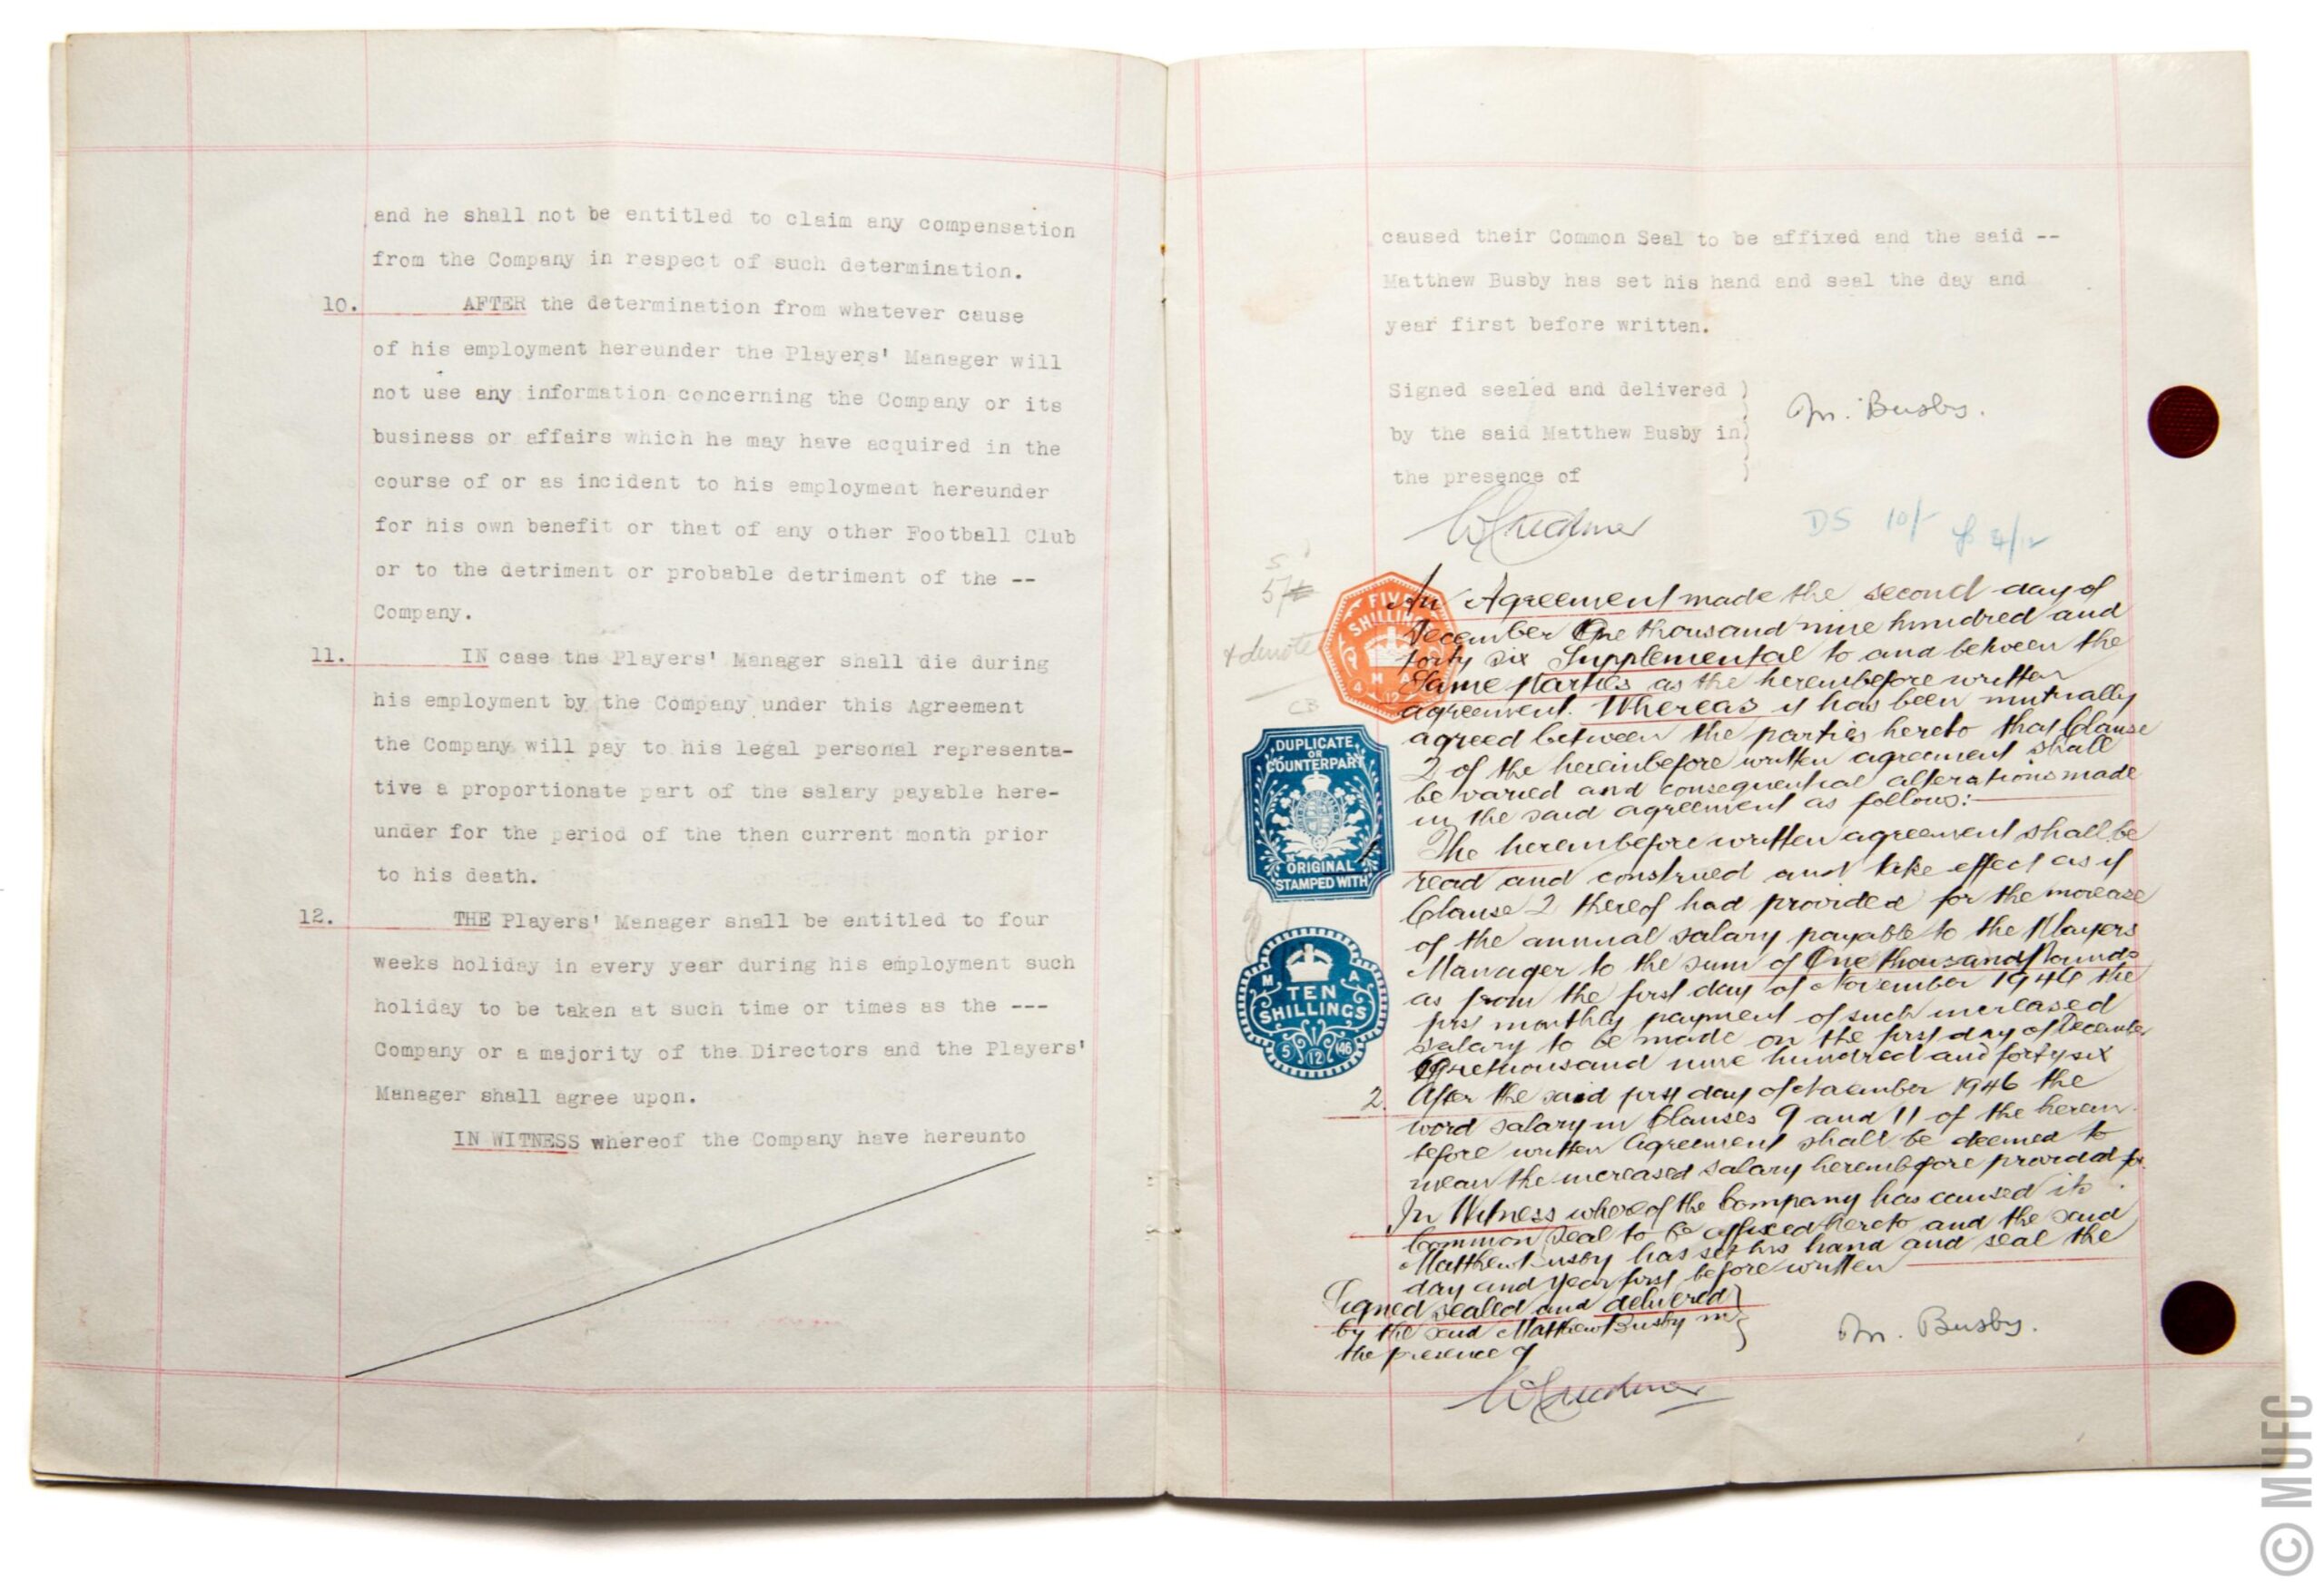 and he shall not be entitled to claim any compensation
from the Company in respect of such determination.
10. AFTER the determination from whatever cause
of his employment hereunder the Players' Manager will
not use any information concerning the Company or its
business or affairs which he may have acquired in the
course of or as incident to his employment hereunder
for his own benefit or that of any other Football Club
or to the detriment or probable detriment of the --
Company.
11. IN case the Players' Manager shall die during
his employment by the Company under this Agreement
the Company will pay to his legal personal representa-
tive a proportionate part of the salary payable here-
under for the period of the then current month prior
to his death.
12. THE Players' Manager shall be entitled to four
weeks holiday in every year during his employment such
holiday to be taken at such time or times as the ---
Company or a majority of the Directors and the Players'
Manager shall agree upon.
IN WITNESS whereof the Company have hereunto
caused their Common Seal to be affixed and the said --
Matthew Busby has set his hand and seal the day and
year first before written.
Signed sealed and delivered )
by the said Matthew Busby in)
the presence of )
M. Busby.
DS 10/-
FIVE
SHILLINGS
DUPLICATE
OR
COUNTERPART
ORIGINAL
STAMPED WITH
TEN
SHILLINGS
5 12 46
An Agreement made the second day of
December One thousand nine hundred and
forty six Supplemental to and between the
same parties as the hereinbefore written
agreement. Whereas it has been mutually
agreed between the parties hereto that Clause
2 of the hereinbefore written agreement shall
be varied and consequential alterations made
in the said agreement as follows:-
1. The hereinbefore written agreement shall be
read and construed and take effect as if
Clause 2 thereof had provided for the increase
of the annual salary payable to the Players
Manager to the sum of One thousand Pounds
as from the first day of November 1946 the
first monthly payment of such increased
salary to be made on the first day of December
One thousand nine hundred and forty six
2. After the said first day of November 1946 the
word salary in Clauses 9 and 11 of the herein
before written Agreement shall be deemed to
mean the increased salary hereinbefore provided for.
In Witness whereof the Company has caused its
Common Seal to be affixed hereto and the said
Matthew Busby has set his hand and seal the
day and year first before written
Signed sealed and delivered
by the said Matthew Busby in
the presence of
M. Busby.
© MUFC